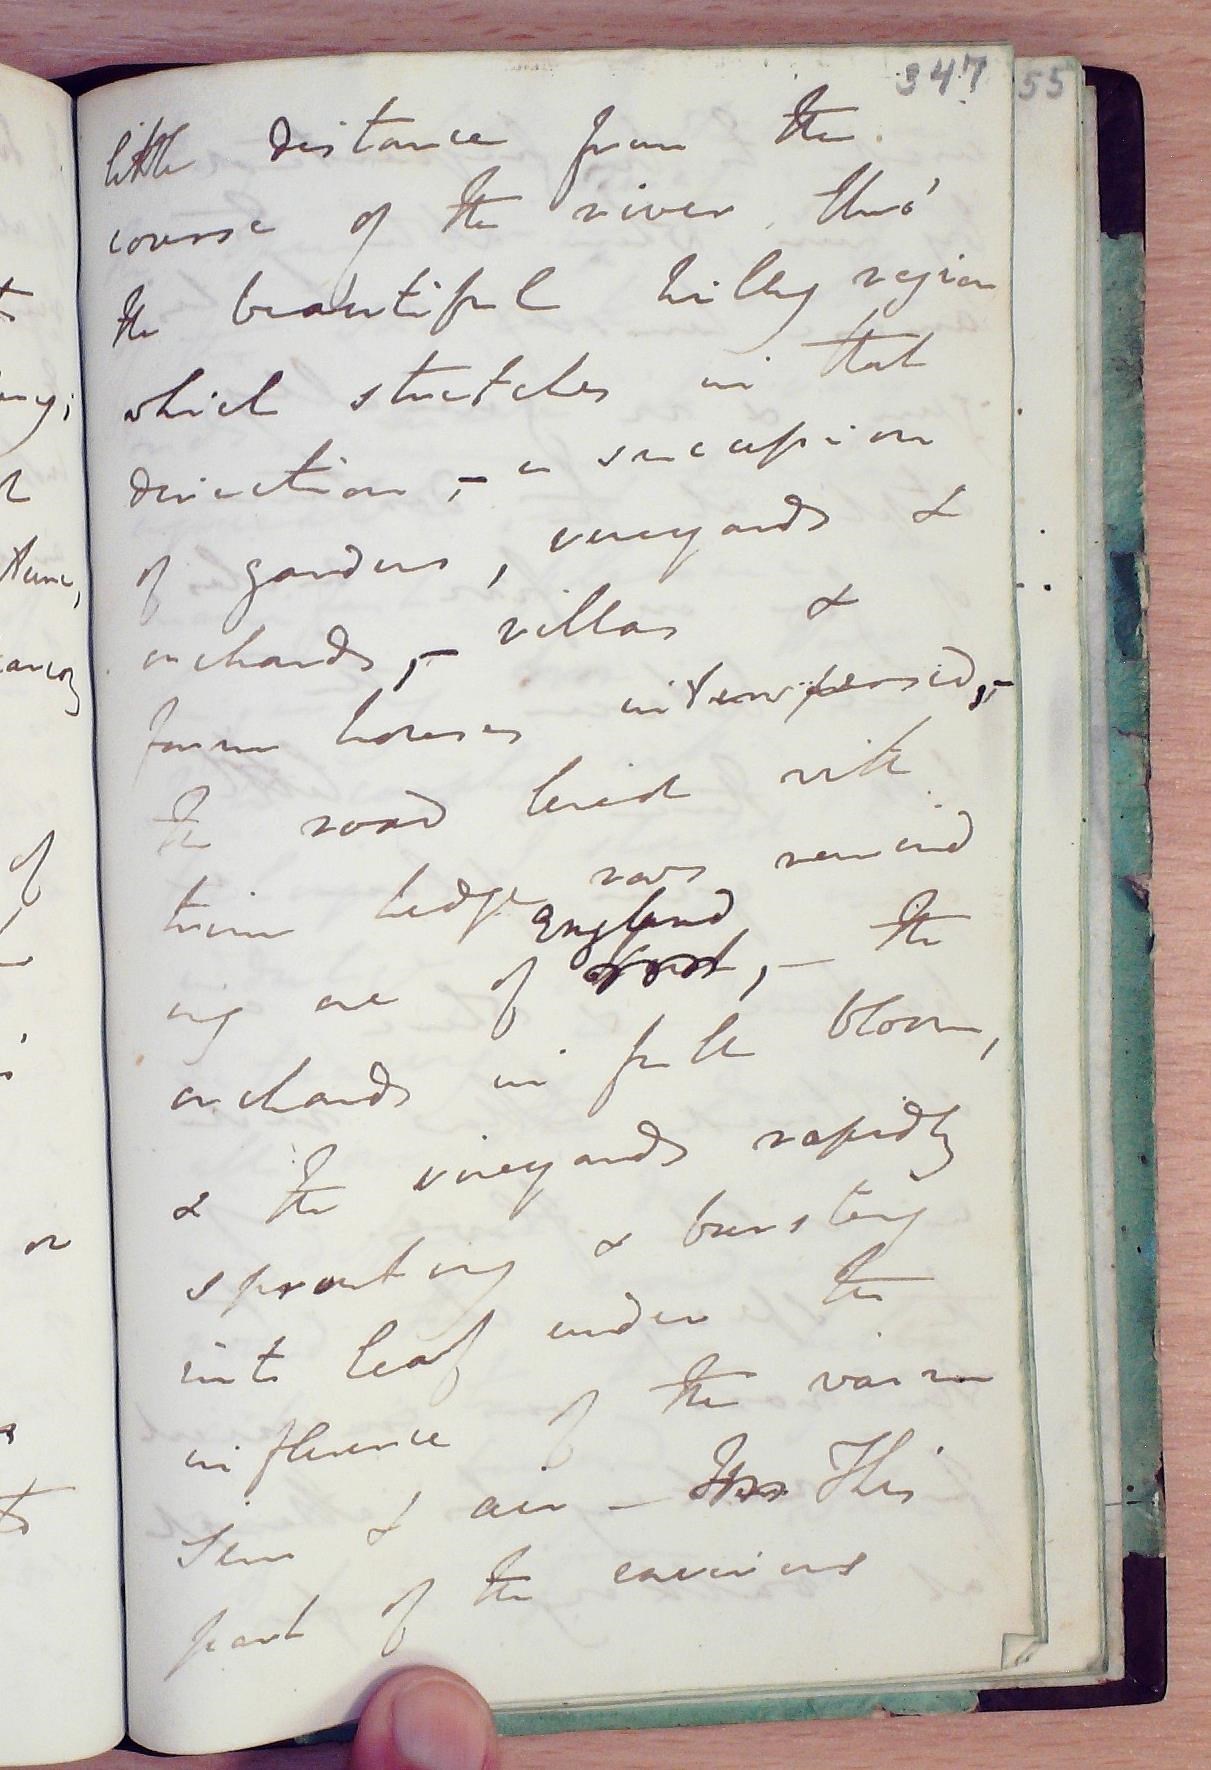 347
55
little distance from the
course of the river, thro'
the beautiful hilly region
which stretches in that
direction, – a succession
of gardens, vineyards &
orchards, – villas &
farm houses interspersed, –
the road lined with
trim hedge rows remind
England
ing one of, – the
orchards in full bloom,
& the vineyards rapidly
sprouting & bursting
into leaf under the
influence of the warm
sun & air – This
part of the environs